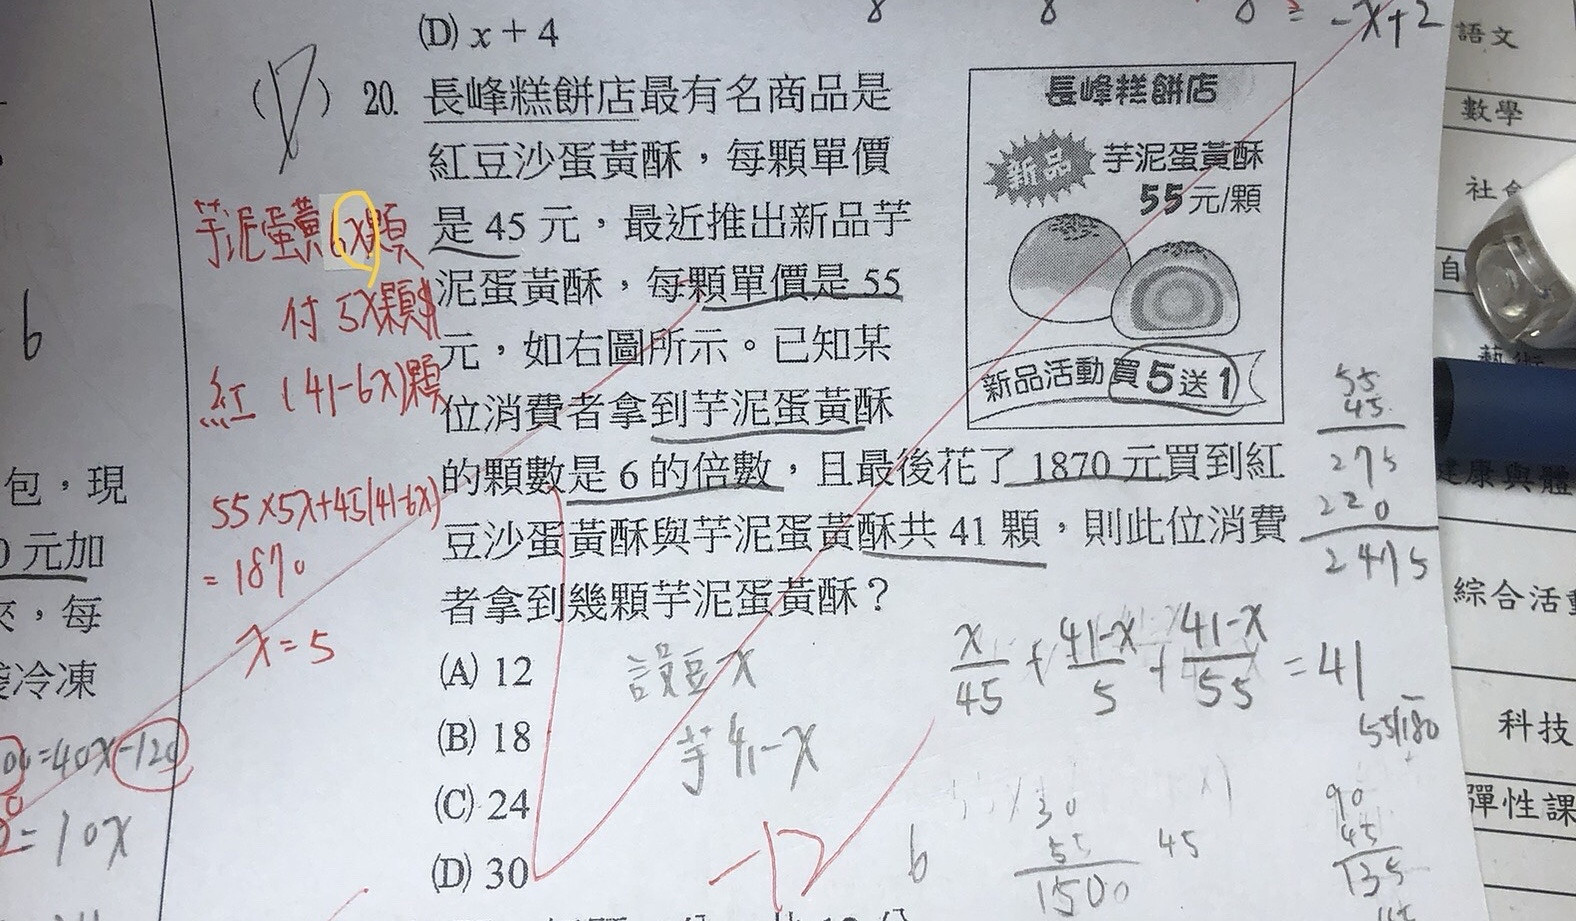 (D) x + 4
-x+2
(D) 20. 長峰糕餅店最有名商品是
紅豆沙蛋黃酥，每顆單價
是 45 元，最近推出新品芋
泥蛋黃酥，每顆單價是 55
元，如右圖所示。已知某
位消費者拿到芋泥蛋黃酥
的顆數是 6 的倍數，且最後花了 1870 元買到紅
豆沙蛋黃酥與芋泥蛋黃酥共 41 顆，則此位消費
者拿到幾顆芋泥蛋黃酥？
(A) 12
(B) 18
(C) 24
(D) 30
長峰糕餅店
新品 芋泥蛋黃酥
55元/顆
新品活動買5送1
芋泥蛋黃6x顆
付 5x顆$
紅 (41-6x)顆
55×5x+45(41-6x)
= 1870
x = 5
設豆x
芋41-x
x/45 + 41-x/5 + 41-x/55 = 41
55
45
275
220
2475
55/180
30
55
1500
45
6
90
45
135
6
包，現
0 元加
來，每
冷凍
=40x-120
=10x
語文
數學
社會
自
藝術
健康與體
綜合活動
科技
彈性課